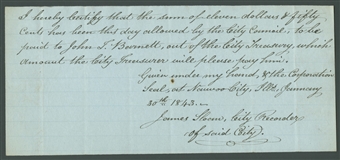 I hereby Certify that the sum of eleven dollars & fifty
Cents has been this day allowed by the City Council, to be
paid to John S. Barnett, out of the City Treasury, which
amount the City Treasurer will please pay him.
Given under my hand, & the Corporation
Seal, at Nauvoo City, Ills, January
30th 1843.
James Sloan, City Recorder
of said City.